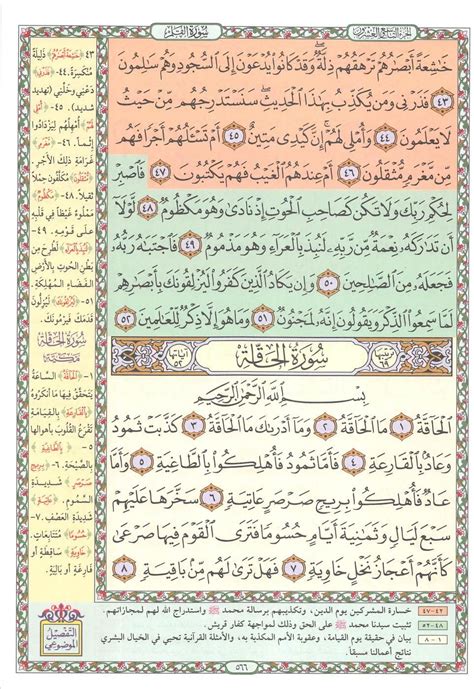 الجزء التاسع والعشرون
سورة القلم
خَٰشِعَةً أَبْصَٰرُهُمْ تَرْهَقُهُمْ ذِلَّةٌ وَقَدْ كَانُوا۟ يُدْعَوْنَ إِلَى ٱلسُّجُودِ وَهُمْ سَٰلِمُونَ
٤٣ فَذَرْنِى وَمَن يُكَذِّبُ بِهَٰذَا ٱلْحَدِيثِ سَنَسْتَدْرِجُهُم مِّنْ حَيْثُ
لَا يَعْلَمُونَ ٤٤ وَأُمْلِى لَهُمْ إِنَّ كَيْدِى مَتِينٌ ٤٥ أَمْ تَسْـَٔلُهُمْ أَجْرًا فَهُم
مِّن مَّغْرَمٍ مُّثْقَلُونَ ٤٦ أَمْ عِندَهُمُ ٱلْغَيْبُ فَهُمْ يَكْتُبُونَ ٤٧ فَٱصْبِرْ
لِحُكْمِ رَبِّكَ وَلَا تَكُن كَصَاحِبِ ٱلْحُوتِ إِذْ نَادَىٰ وَهُوَ مَكْظُومٌ ٤٨ لَّوْلَآ
أَن تَدَٰرَكَهُۥ نِعْمَةٌ مِّن رَّبِّهِۦ لَنُبِذَ بِٱلْعَرَآءِ وَهُوَ مَذْمُومٌ ٤٩ فَٱجْتَبَٰهُ رَبُّهُۥ
فَجَعَلَهُۥ مِنَ ٱلصَّٰلِحِينَ ٥٠ وَإِن يَكَادُ ٱلَّذِينَ كَفَرُوا۟ لَيُزْلِقُونَكَ بِأَبْصَٰرِهِمْ
لَمَّا سَمِعُوا۟ ٱلذِّكْرَ وَيَقُولُونَ إِنَّهُۥ لَمَجْنُونٌ ٥١ وَمَا هُوَ إِلَّا ذِكْرٌ لِّلْعَٰلَمِينَ ٥٢
ترتيبها ٦٩ سورة الحاقة آياتها ٥٢
بِسْمِ ٱللَّهِ ٱلرَّحْمَٰنِ ٱلرَّحِيمِ
ٱلْحَآقَّةُ ١ مَا ٱلْحَآقَّةُ ٢ وَمَآ أَدْرَىٰكَ مَا ٱلْحَآقَّةُ ٣ كَذَّبَتْ ثَمُودُ
وَعَادٌۢ بِٱلْقَارِعَةِ ٤ فَأَمَّا ثَمُودُ فَأُهْلِكُوا۟ بِٱلطَّاغِيَةِ ٥ وَأَمَّا
عَادٌ فَأُهْلِكُوا۟ بِرِيحٍ صَرْصَرٍ عَاتِيَةٍ ٦ سَخَّرَهَا عَلَيْهِمْ
سَبْعَ لَيَالٍ وَثَمَٰنِيَةَ أَيَّامٍ حُسُومًا فَتَرَى ٱلْقَوْمَ فِيهَا صَرْعَىٰ
كَأَنَّهُمْ أَعْجَازُ نَخْلٍ خَاوِيَةٍ ٧ فَهَلْ تَرَىٰ لَهُم مِّنۢ بَاقِيَةٍ ٨
٤٣- ﴿خَاشِعَةً أَبْصَارُهُمْ﴾ ذَلِيلَةً
مُنْكَسِرَةً. ٤٤- ﴿فَذَرْنِي﴾
دَعْنِي وَخَلِّنِي (تهديد
شديد). ٤٥- ﴿وَأُمْلِي
لَهُمْ﴾ أُمْهِلُهُمْ لِيَزْدَادُوا
إِثْمًا. ٤٦- ﴿مَغْرَمٍ﴾
غَرَامَةِ ذلك الأجر.
﴿مُثْقَلُونَ﴾ مُكَلَّفُونَ حِمْلًا
ثَقِيلًا. ٤٨- ﴿مَكْظُومٌ﴾
مَمْلُوءٌ غَيْظًا في قَلْبِهِ
على قَوْمِهِ. ٤٩-
﴿لَنُبِذَ بِالْعَرَاءِ﴾ لَطُرِحَ مِنْ
بَطْنِ الحُوتِ بالأَرْضِ
الفَضَاءِ المُهْلِكَةِ.
٥١- ﴿لَيُزْلِقُونَكَ﴾ لَيُزِلُّونَ
قَدَمَكَ فَيَرْمُونَكَ.
سورة الحاقة
مكية
١- ﴿الْحَاقَّةُ﴾ السَّاعَةُ
يَتَحَقَّقُ فِيهَا مَا أَنْكَرُوهُ.
٤- ﴿بِالْقَارِعَةِ﴾ بِالقِيَامَةِ
تَقْرَعُ القُلُوبَ بأهوالها
٥- ﴿بِالطَّاغِيَةِ﴾
بِالصَّيْحَةِ. ٦- ﴿بِرِيحٍ
صَرْصَرٍ﴾ شَدِيدَةِ
السَّمُومِ. ﴿عَاتِيَةٍ﴾
شَدِيدَةِ العَصْفِ. ٧-
﴿حُسُومًا﴾ مُتَتَابِعَاتٍ.
﴿خَاوِيَةٍ﴾ سَاقِطَةٍ أو
فَارِغَةٍ أو بَالِيَةٍ.
التفصيل الموضوعي
٤٢-٤٧ خسارة المشركين يوم الدين، وتكذيبهم برسالة محمد ﷺ واستدراج الله لهم لمجازاتهم.
٤٨-٥٢ تثبيت سيدنا محمد ﷺ على الحق وذلك لمواجهة كفار قريش.
١-٨ بيان في حقيقة يوم القيامة، وعقوبة الأمم المكذبة به، والأمثلة القرآنية تحيي في الخيال البشري
نتائج أعمالنا مسبقاً.
٥٦٦